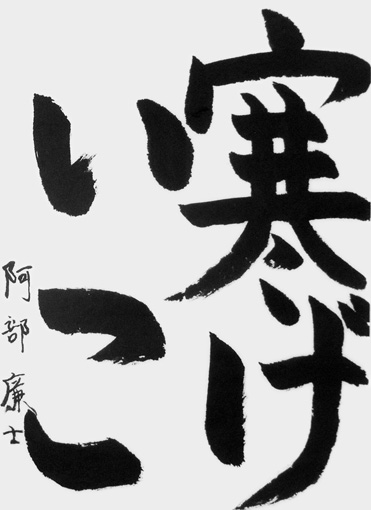 寒げ
いこ
阿部廉士